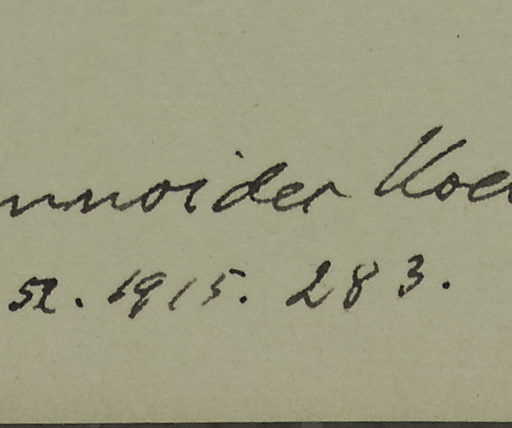 nnoides Koen
52. 1915. 283.